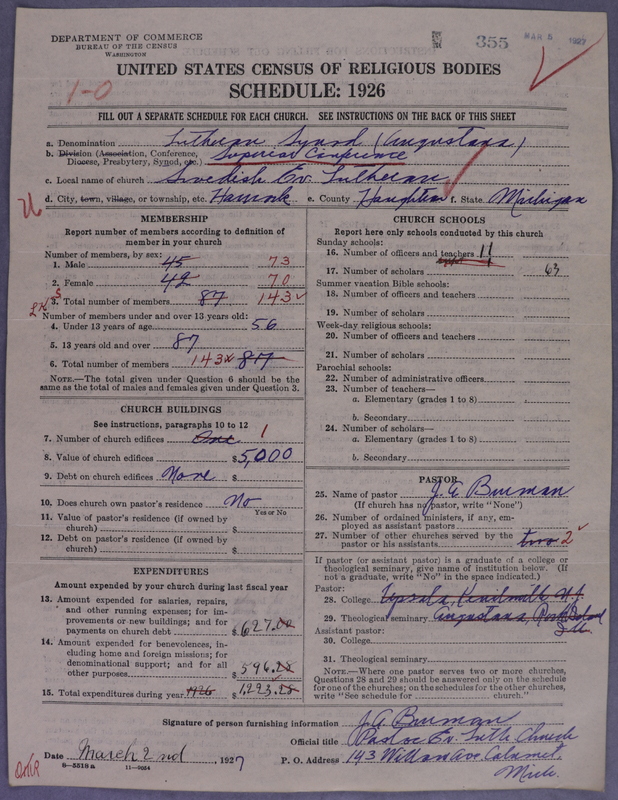 DEPARTMENT OF COMMERCE
BUREAU OF THE CENSUS
WASHINGTON
355 MAR 5 1927
UNITED STATES CENSUS OF RELIGIOUS BODIES
SCHEDULE: 1926
1-0
FILL OUT A SEPARATE SCHEDULE FOR EACH CHURCH. SEE INSTRUCTIONS ON THE BACK OF THIS SHEET
a. Denomination Lutheran Synod (Augustana)
b. Division (Association, Conference, Diocese, Presbytery, Synod, etc.) Superior Conference
c. Local name of church Swedish Ev. Lutheran
d. City, town, village, or township, etc. Hancock e. County Houghton f. State Michigan
MEMBERSHIP
Report number of members according to definition of
member in your church
Number of members, by sex:
1. Male 45 73
2. Female 42 70
3. Total number of members 87 143
Number of members under and over 13 years old:
4. Under 13 years of age 56
5. 13 years old and over 87
6. Total number of members 143 87
NOTE.—The total given under Question 6 should be the
same as the total of males and females given under Question 3.
CHURCH BUILDINGS
See instructions, paragraphs 10 to 12
7. Number of church edifices One 1
8. Value of church edifices $5,000
9. Debt on church edifices None $
10. Does church own pastor's residence No
Yes or No
11. Value of pastor's residence (if owned by
church) $
12. Debt on pastor's residence (if owned by
church) $
EXPENDITURES
Amount expended by your church during last fiscal year
13. Amount expended for salaries, repairs,
and other running expenses; for im-
provements or new buildings; and for
payments on church debt $627.00
14. Amount expended for benevolences, in-
cluding home and foreign missions; for
denominational support; and for all
other purposes 596.25
15. Total expenditures during year 1926 $1,223.25
CHURCH SCHOOLS
Report here only schools conducted by this church
Sunday schools:
16. Number of officers and teachers 11
17. Number of scholars 63
Summer vacation Bible schools:
18. Number of officers and teachers
19. Number of scholars
Week-day religious schools:
20. Number of officers and teachers
21. Number of scholars
Parochial schools:
22. Number of administrative officers
23. Number of teachers—
a. Elementary (grades 1 to 8)
b. Secondary
24. Number of scholars—
a. Elementary (grades 1 to 8)
b. Secondary
PASTOR
25. Name of pastor J. A. Burman
(If church has no pastor, write "None")
26. Number of ordained ministers, if any, em-
ployed as assistant pastors
27. Number of other churches served by the
pastor or his assistants two 2
If pastor (or assistant pastor) is a graduate of a college or
theological seminary, give name of institution below. (If
not a graduate, write "No" in the space indicated.)
Pastor:
28. College Upsala, Kenilworth N.J.
29. Theological seminary Augustana, Rock Island
Ill.
Assistant pastor:
30. College
31. Theological seminary
NOTE.—Where one pastor serves two or more churches,
Questions 28 and 29 should be answered only on the schedule
for one of the churches; on the schedules for the other churches,
write "See schedule for church."
Signature of person furnishing information J. A. Burman
Official title Pastor Ev. Luth. Church
Date March 2nd 1927 P. O. Address 143 Willow Ave Calumet,
Mich.
8—5318 a 11—9054